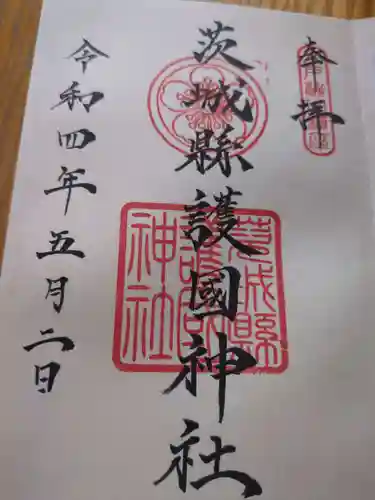 奉拝
茨城縣護國神社
茨城縣護國神社
令和四年五月二日